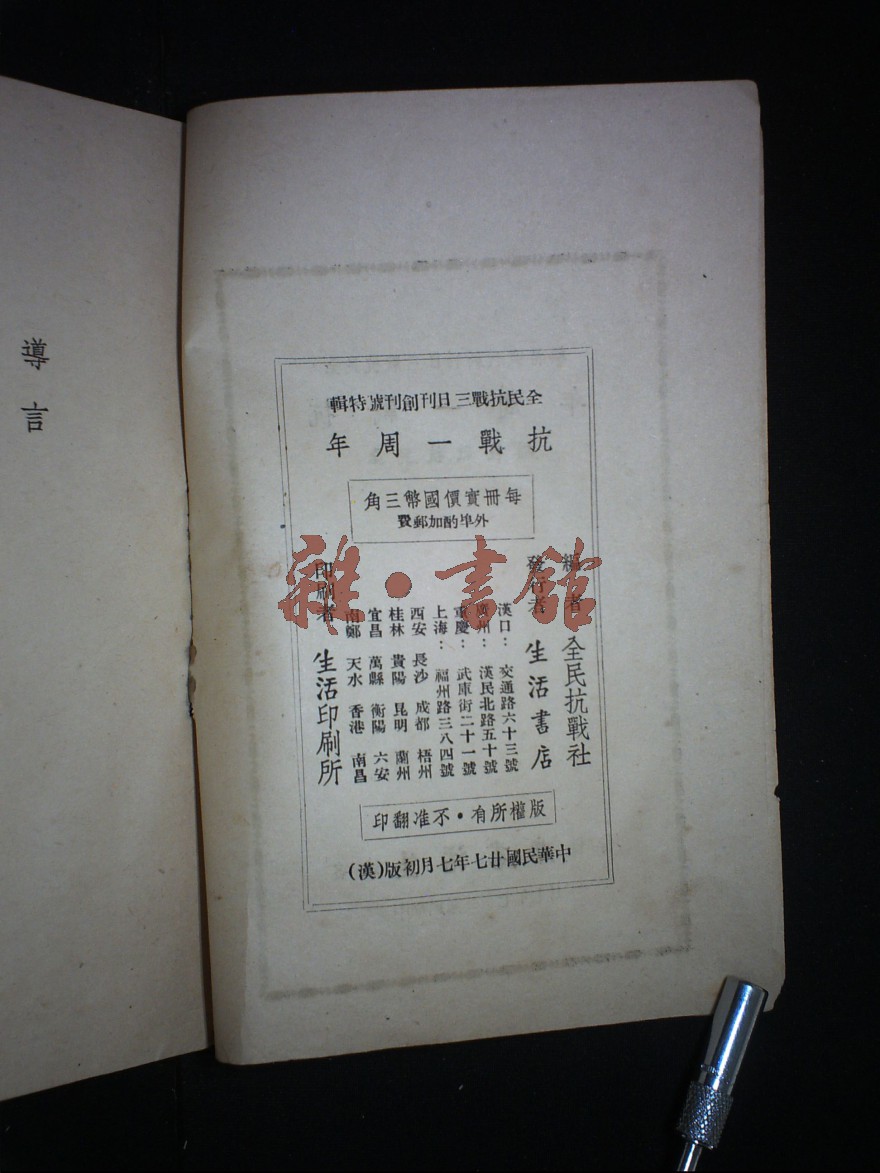 導言
全民抗戰三日刊創刊號特輯
抗戰一周年
每冊實價國幣三角
外埠酌加郵費
編者 全民抗戰社
發行者 生活書店
漢口：交通路六十三號
廣州：漢民北路五十號
重慶：武庫街二十一號
上海：福州路三八四號
西安 長沙 成都 梧州
桂林 貴陽 昆明 蘭州
宜昌 萬縣 衡陽 六安
南鄭 天水 香港 南昌
印刷者 生活印刷所
版權所有・不准翻印
中華民國廿七年七月初版(漢)
雜・書館